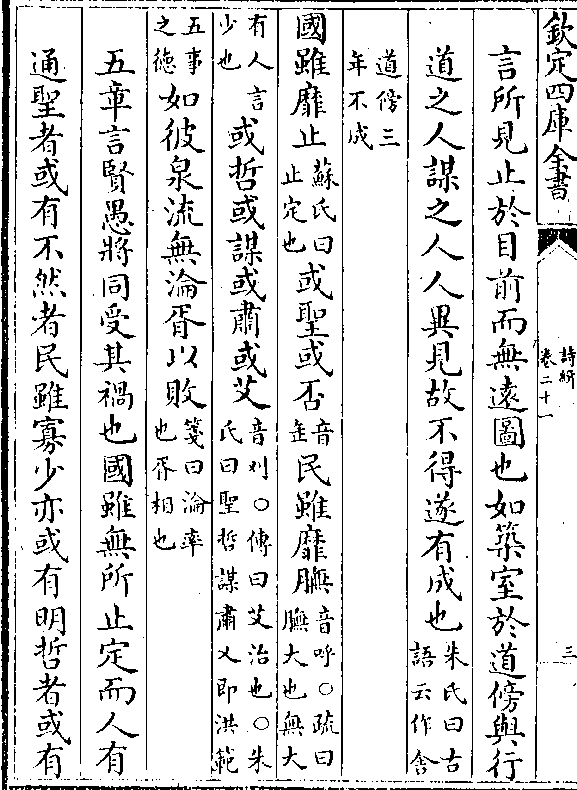 欽定四庫全書
詩緝
卷二十一
三
言所見止於目前而無遠圖也如築室於道傍與行
道之人謀之人人異見故不得遂有成也朱氏曰古
語云作舍
道傍三
年不成
國雖靡止蘇氏曰
止定也或聖或否音
缶民雖靡膴音呼○疏曰
膴大也無大
有人言
少也或哲或謀或肅或艾音刈○傳曰艾治也○朱
氏曰聖哲謀肅乂即洪範
五事
之德如彼泉流無淪胥以敗箋曰淪率
也胥相也
五章言賢愚將同受其禍也國雖無所止定而人有
通聖者或有不然者民雖寡少亦或有明哲者或有